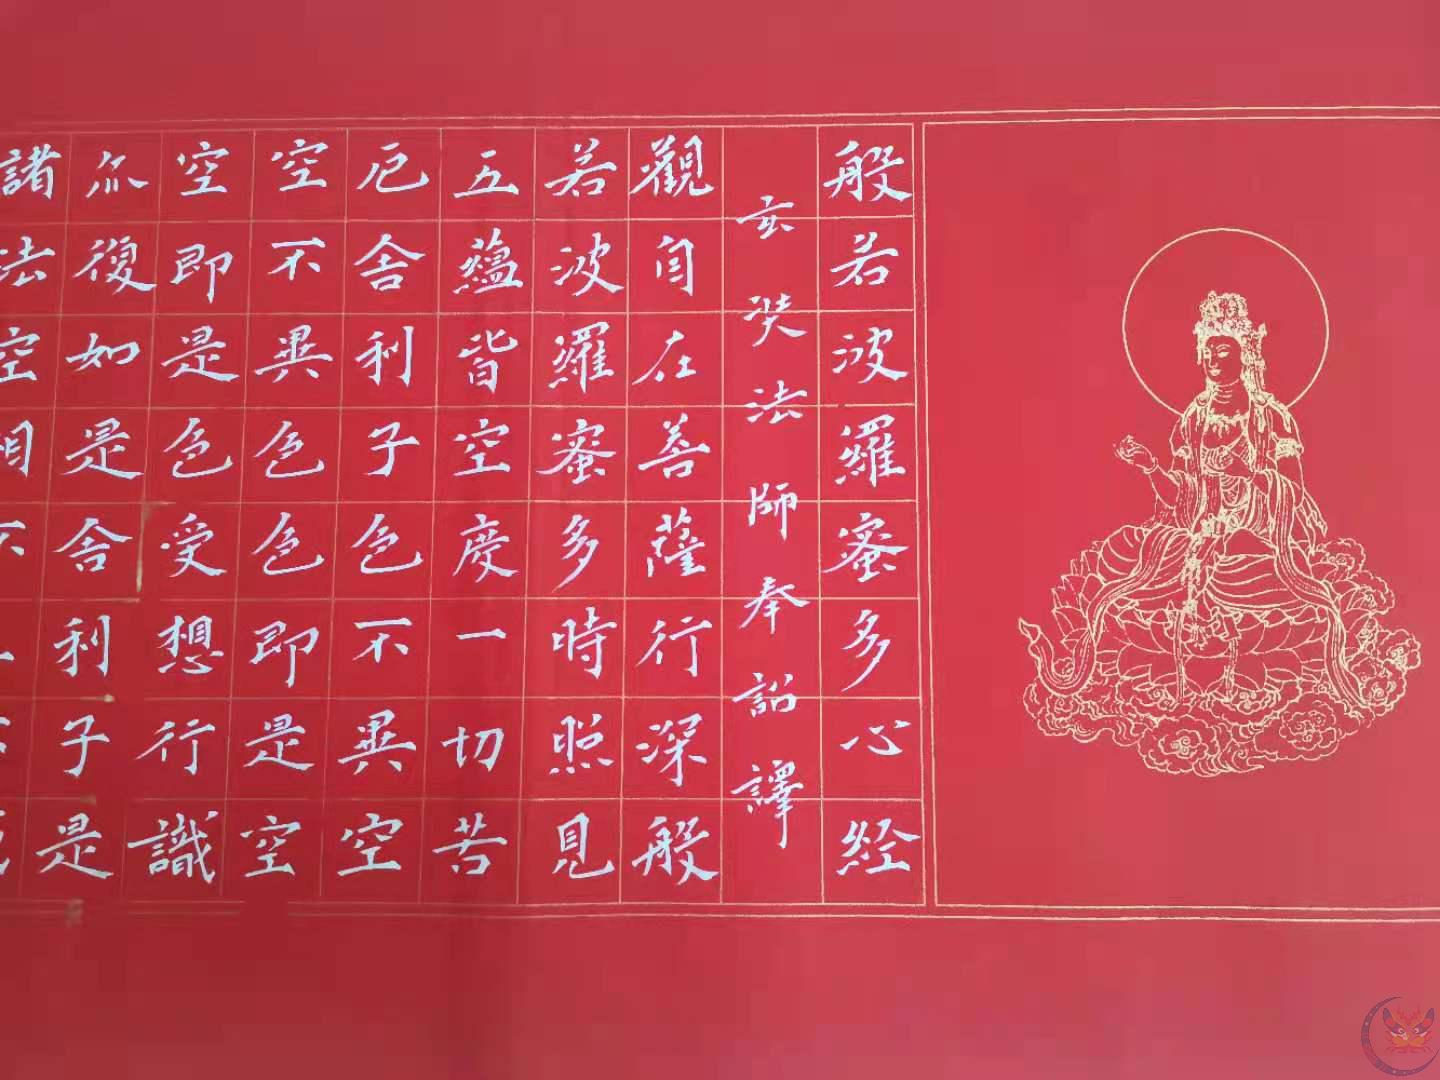 般若波羅蜜多心経
玄奘法師奉詔譯
觀自在菩薩行深般
若波羅蜜多時照見
五蘊皆空度一切苦
厄舍利子色不異空
空不異色色即是空
空即是色受想行識
亦復如是舍利子是
諸法空相不